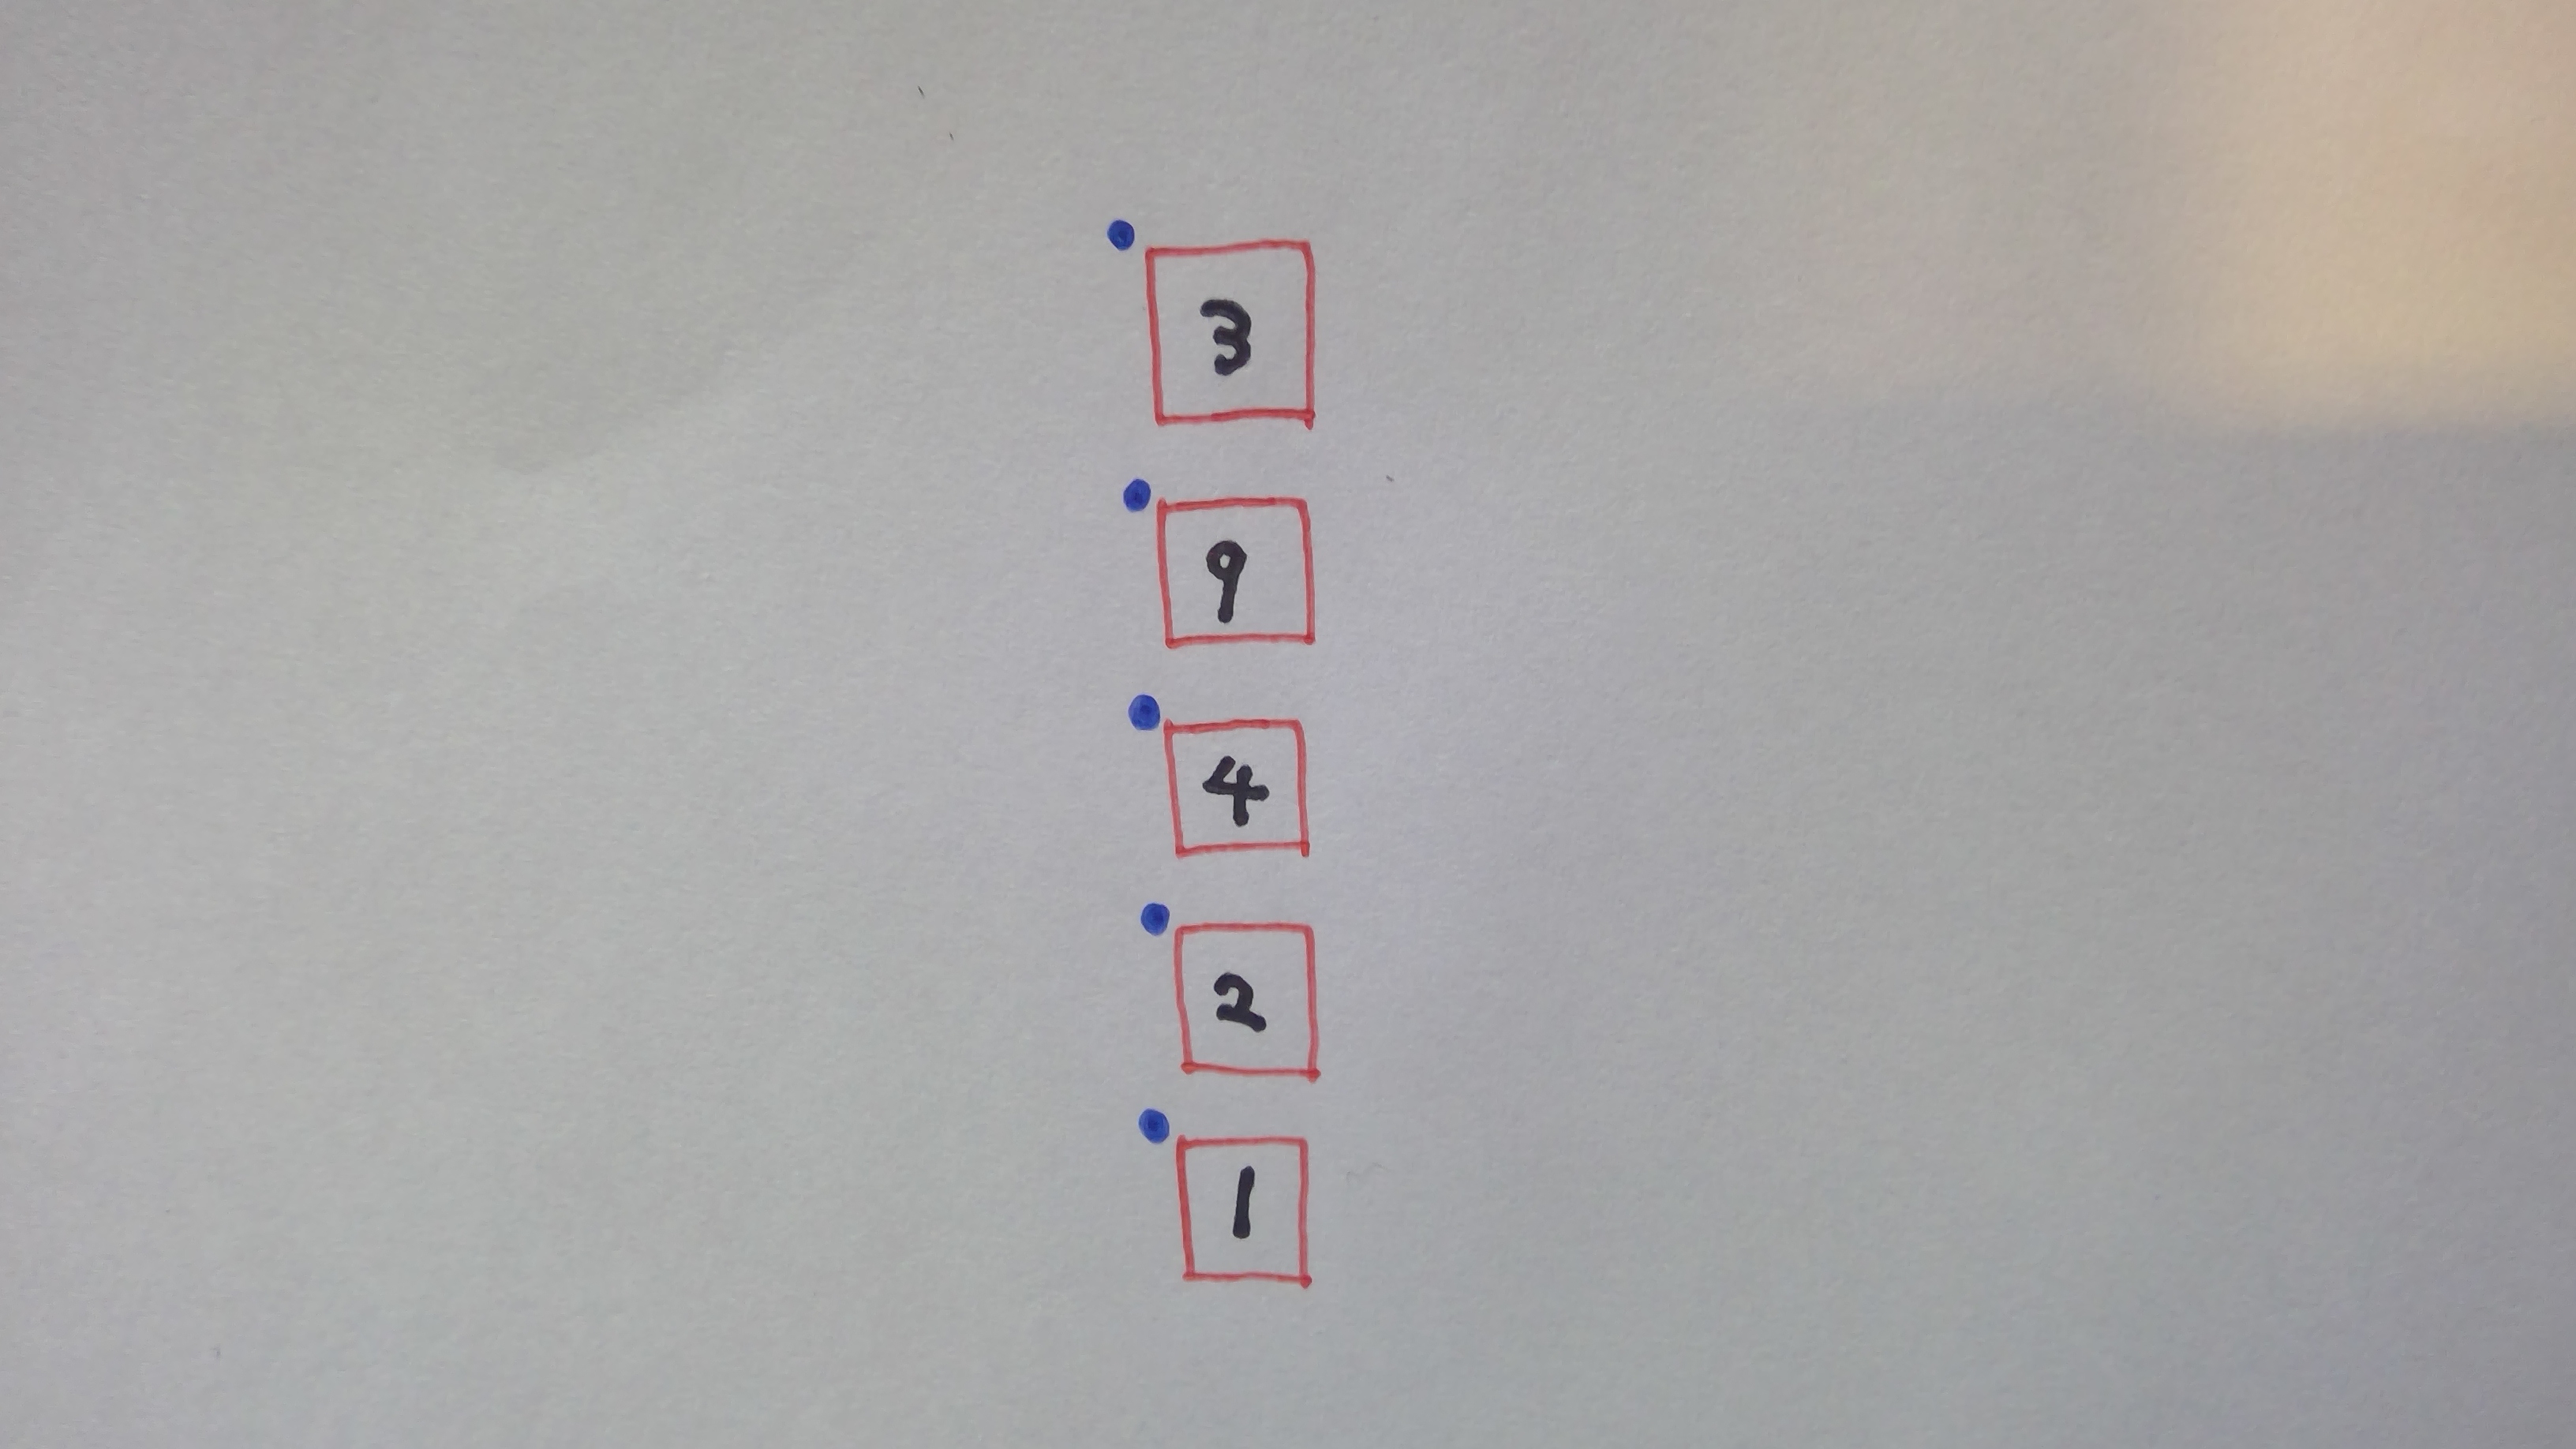 3
9
4
2
1